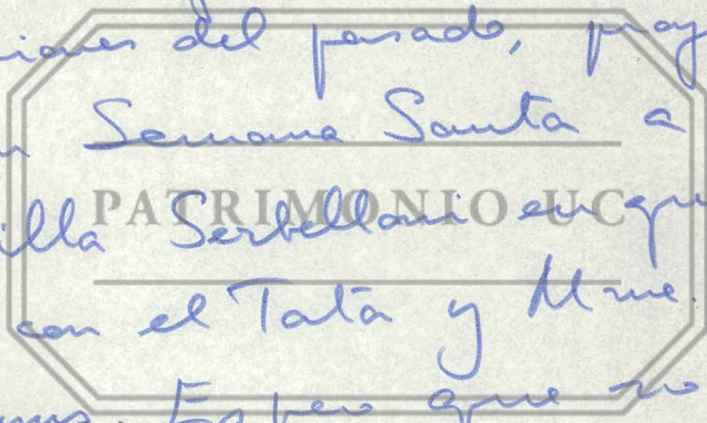 iones del pasado, proy
Semana Santa a
PATRIMONIO UC
illa Serbelloni en que
con el Tata y Mme.
Espero que no